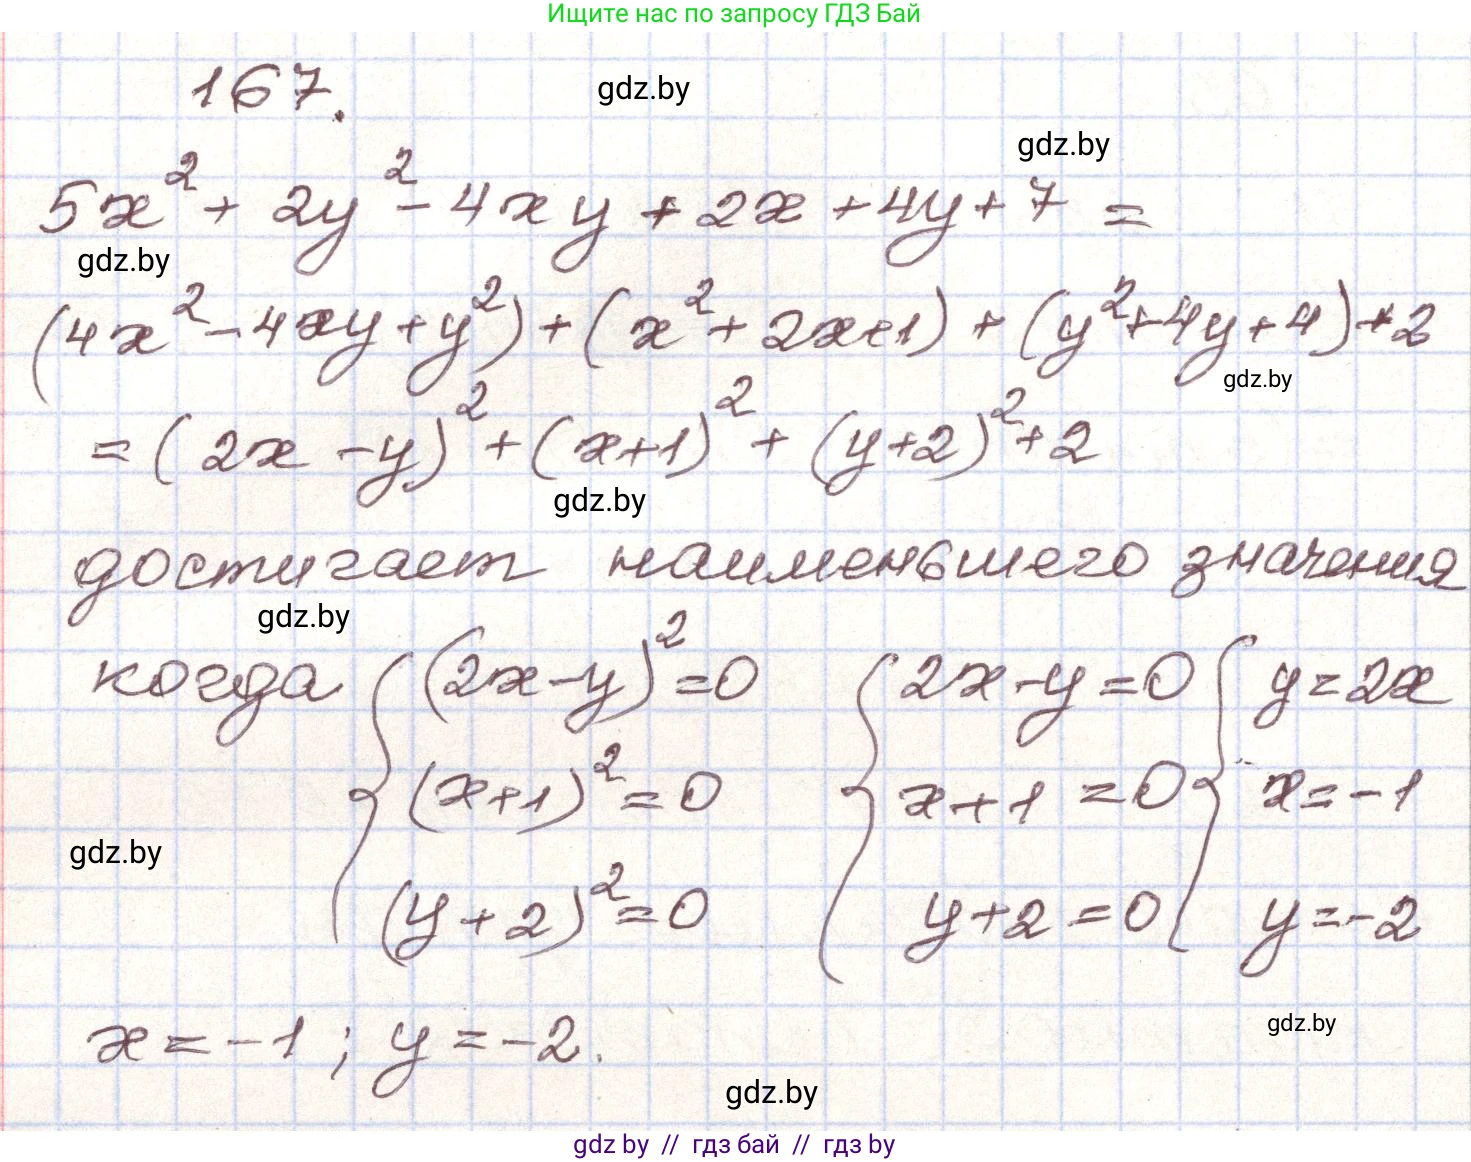 Ищите нас по запросу ГДЗ Бай
167.
gdz.by
gdz.by
5x² + 2y² - 4xy + 2x + 4y + 7 =
gdz.by
(4x² - 4xy + y²) + (x² + 2x + 1) + (y² + 4y + 4) + 2
gdz.by
= (2x - y)² + (x+1)² + (y+2)² + 2
gdz.by
достигает наименьшего значения
gdz.by
когда { (2x-y)² = 0 { 2x-y = 0 { y = 2x
(x+1)² = 0 x+1 = 0 x = -1
gdz.by
(y+2)² = 0 y+2 = 0 y = -2
gdz.by
x = -1; y = -2.
gdz.by
gdz by // гдз бай // гдз by